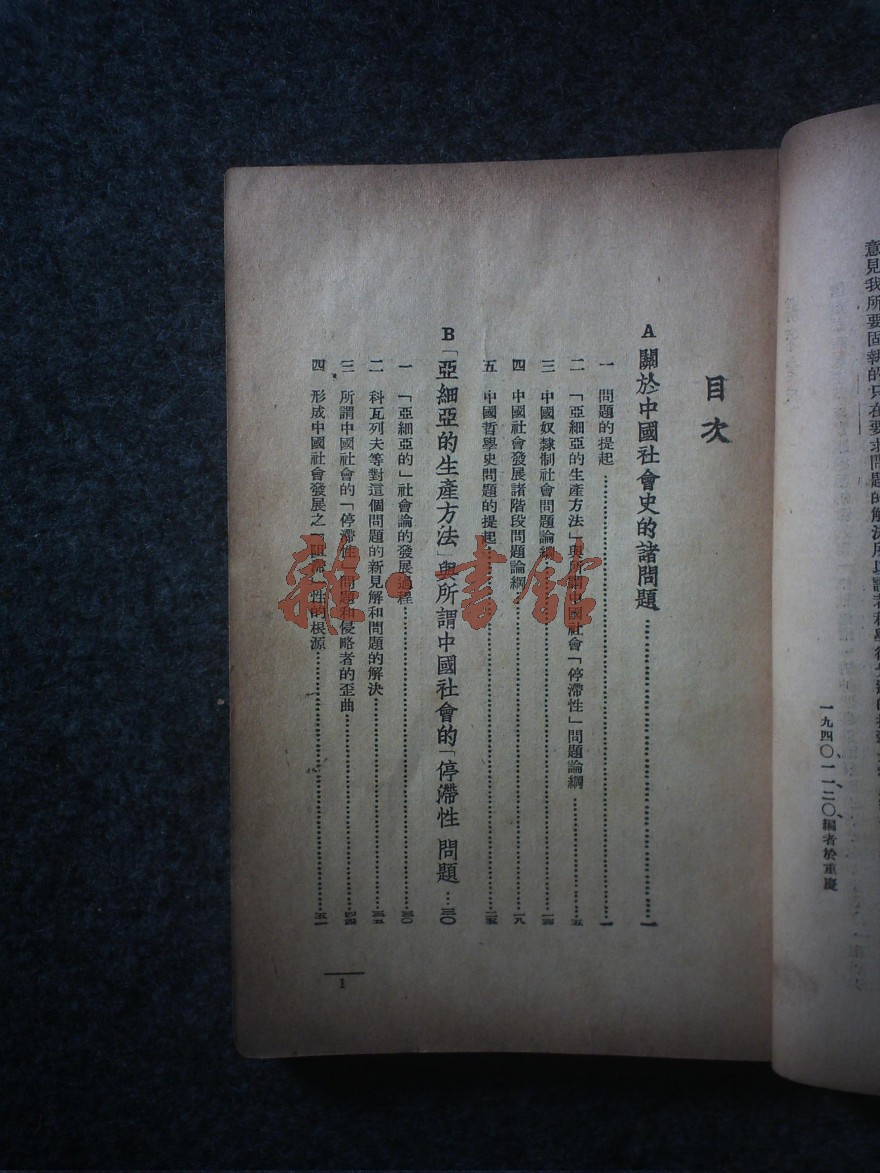 意見我所要固執的只在要求問題的解決所以讀者和學術
一九四〇、一一、二〇、編者於重慶
目次
A 關於中國社會史的諸問題……一
一 問題的提起……一
二 「亞細亞的生產方法」與所謂中國社會「停滯性」問題論綱……五
三 中國奴隸制社會問題論綱……一四
四 中國社會發展諸階段問題論綱……一八
五 中國哲學史問題的提起……二五
B 「亞細亞的生產方法」與所謂中國社會的「停滯性 問題…三〇
一 「亞細亞的」社會論的發展過程……三〇
二 科瓦列夫等對這個問題的新見解和問題的解決……三五
三 所謂中國社會的「停滯性」問題和侵略者的歪曲……四四
四 形成中國社會發展之 性的根源……五一
1
雜·書館